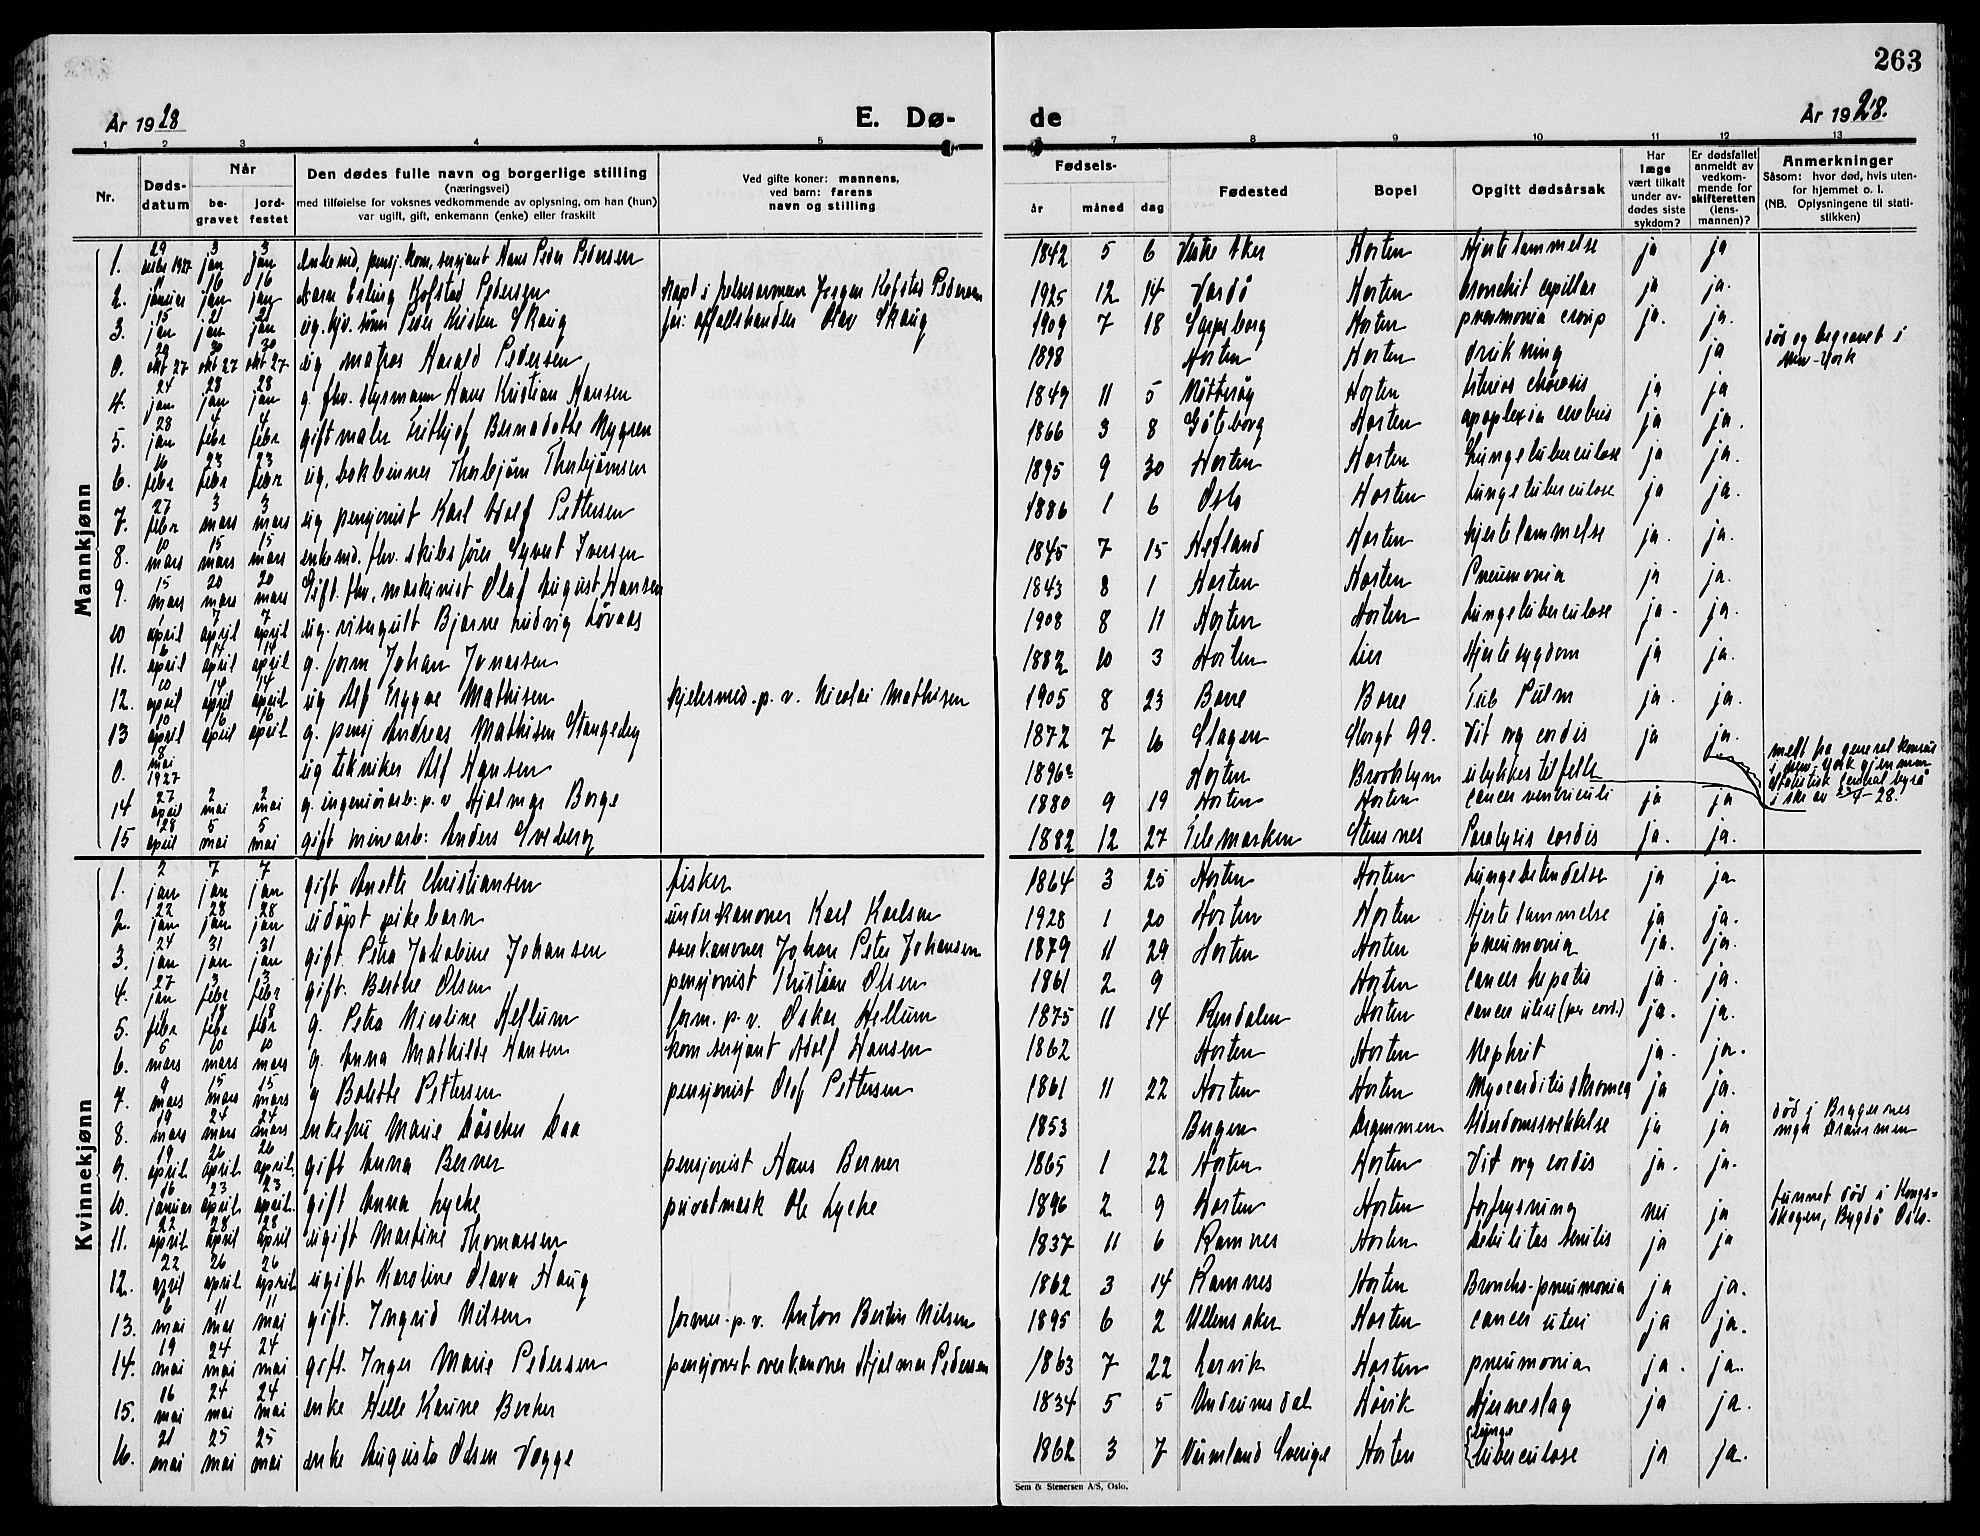 263
År 1928
E. Dø-
de
År 1928.
1 2 3 4 5 7 8 9 10 11 12 13
Nr.
Døds-
datum
Når
be-
gravet
jord-
festet
Den dødes fulle navn og borgerlige stilling
(næringsvei)
med tilføielse for voksnes vedkommende av oplysning, om han (hun)
var ugift, gift, enkemann (enke) eller fraskilt
Ved gifte koner: mannens,
ved barn: farens
navn og stilling
Fødsels-
år måned dag
Fødested
Bopel
Opgitt dødsårsak
Har
læge
vært tilkalt
under av-
dødes siste
sykdom?
Er dødsfallet
anmeldt av
vedkom-
mende for
skifteretten
(lens-
mannen)?
Anmerkninger
Såsom: hvor død, hvis uten-
for hjemmet o. l.
(NB. Oplysningene til stati-
stikken)
Mannkjønn
1. 29 desbr 1927 3 jan 3 jan enkemd. pensj. kom. sersjant Hans Peder Pedersen 1842 5 6 Vestre Aker Horten Hjertelammelse ja ja
2. januar 16 jan 16 jan Erling Kofstad Pedersen kapt i frelsesarmeen Jørgen Kofstad Pedersen 1925 12 14 Vardö Horten bronchit capillar ja ja.
3. 15 jan 21 jan 21 jan ug. Peder Kristen Skaug Olav Skaug 1909 7 18 Sarpsborg Horten pneumonia croup ja. ja.
0. okt 27 30 okt 27 30 okt 27 ug matros Harald Pedersen 1898 Horten Horten drukning ja død og begravet i
New-York
4. 24 jan 28 jan 28 jan g. fhv. styrmann Hans Kristian Hansen 1849 11 5 Nötteröy Horten ja ja
5. 28 jan 4 febr 4 febr gift maler Frithjof Bernadotte Nygren 1866 3 8 Göteborg Horten apoplexia cerebris ja ja.
6. 16 febr 23 febr 23 febr ug. bokbinner Thorbjörn Thorbjörnsen 1895 9 30 Horten Horten Lungetuberculose ja ja.
7. 27 febr 3 mars 3 mars ug pensjonist Karl Adolf Pettersen 1886 1 6 Oslo Horten Lungetuberculose ja ja.
8. 10 mars 15 mars 15 mars enkemd. fhv. skibsfører Syvert Iversen 1845 7 15 Hetland Horten hjertelammelse ja. ja.
9. 15 mars 20 mars 20 mars Gift. fhv. maskinist Olaf August Hansen 1843 8 1 Horten Horten Pneumonia ja ja.
10 april 7 april 7 april ug. visergutt Bjarne Ludvig Lövaas 1908 8 11 Horten Horten Lungetuberculose ja. ja.
11. 6 april 14 april 14 april g. form Johan Jonassen 1882 10 3 Horten Lier Hjertesygdom ja ja.
12. 10 april 14 april 14 april ug Alf Trygve Mathisen kjelesmed. p. v. Nicolai Mathisen 1905 8 23 Borre Borre Tub Pulm ja. ja.
13 10 april 16 april 16 april g. pensj Andreas Mathisen Stangeby 1872 7 16 Slagen Storgt 99. Vit org cordis ja ja.
0. 8 mai 1927 ug tekniker Alf Hansen 1896? Horten Brooklyn ulykkestilfelle meldt fra generalkonsul
i New-York gjennem
Statistisk Central byrå
i skr av 23/4-28.
14 27 april 2 mai 2 mai g. ingeniörarb: p. v Hjalmar Borge 1880 9 19 Horten Horten cancer ventriculi ja ja
15 28 april 5 mai 5 mai gift minearb: Anders Sveberg 1882 12 27 Telemarken Stensnes Paralysis cordis ja. ja.
Kvinnekjønn
1. 2 jan 7 jan 7 jan gift Anette Christiansen fisker 1864 3 25 Horten Horten Lungebetendelse ja ja
2. 22 jan 28 jan 28 jan udöpt pikebarn underkanoner Karl Karlsen 1928 1 20 Horten Horten Hjertelammelse ja ja.
3. 24 jan 31 jan 31 jan gift. Petra Jakobine Johansen Johan Peter Johansen 1879 11 29 Horten Horten pneumonia ja. ja.
4. 27 jan 3 febr 3 febr gift. Berthe Olsen pensjonist Kristian Olsen 1861 2 9 Horten cancer hepatis ja. ja.
5. febr 18 febr 18 febr g. Petra Nicoline Hellum form. p. v. Oskar Hellum 1875 11 14 Rendalen Horten cancer uteri ja. ja.
6. 5 mars 10 mars 10 mars g. Anna Mathilde Hansen kom sersjant Adolf Hansen 1862 Horten Horten Nephrit ja. ja.
7. 9 mars 15 mars 15 mars g Bolette Pettersen pensjonist Olof Pettersen 1861 11 22 Horten Horten ja ja.
8. 19 mars 24 mars 24 mars enkefru Marie Löscher Daa 1853 Bergen Drammen Alderdomssvekkelse ja ja død i Bragernes
mgh Drammen
9. 19 april 26 april 26 april gift Anna Berner pensjonist Hans Berner 1865 1 22 Horten Horten Vit org cordis ja. ja.
10. 16 januar 23 april 23 april. gift Anna Lyche privatmask Ole Lyche 1896 2 9 Horten Horten forfrysning nei ja funnet død i Kongs-
skogen, Bygdö Oslo.
11. 22 april 28 april 28 april ugift Martine Thomassen 1837 11 6 Ramnes Horten debilitas senilis ja ja
12. 22 april 26 april 26 april ugift Karoline Olava Haug 1862 3 14 Ramnes Horten Broncho-pneumonia ja ja.
13. 6 mai 11 mai 11 mai gift. Ingrid Nilsen former. p. v. Anton Bertin Nilsen 1895 6 2 Ullensaker Horten cancer uteri ja ja.
14. 19 mai 24 mai 24 mai gift. Inger Marie Pedersen pensjonert overkanoner Hjalmar Pedersen 1863 7 22 Larvik Horten pneumonia ja. ja.
15. 16 mai 24 mai 24 mai enke Helle Karine Becher 1834 5 5 Undrumsdal Hövik Hjerneslag ja ja.
16. 21 mai 25 mai 25 mai enke Augusta Olsen Vegge 1862 3 7 Värmland Sverige Horten lunge
tuberculose ja ja.
Sem & Stenersen A/S, Oslo.